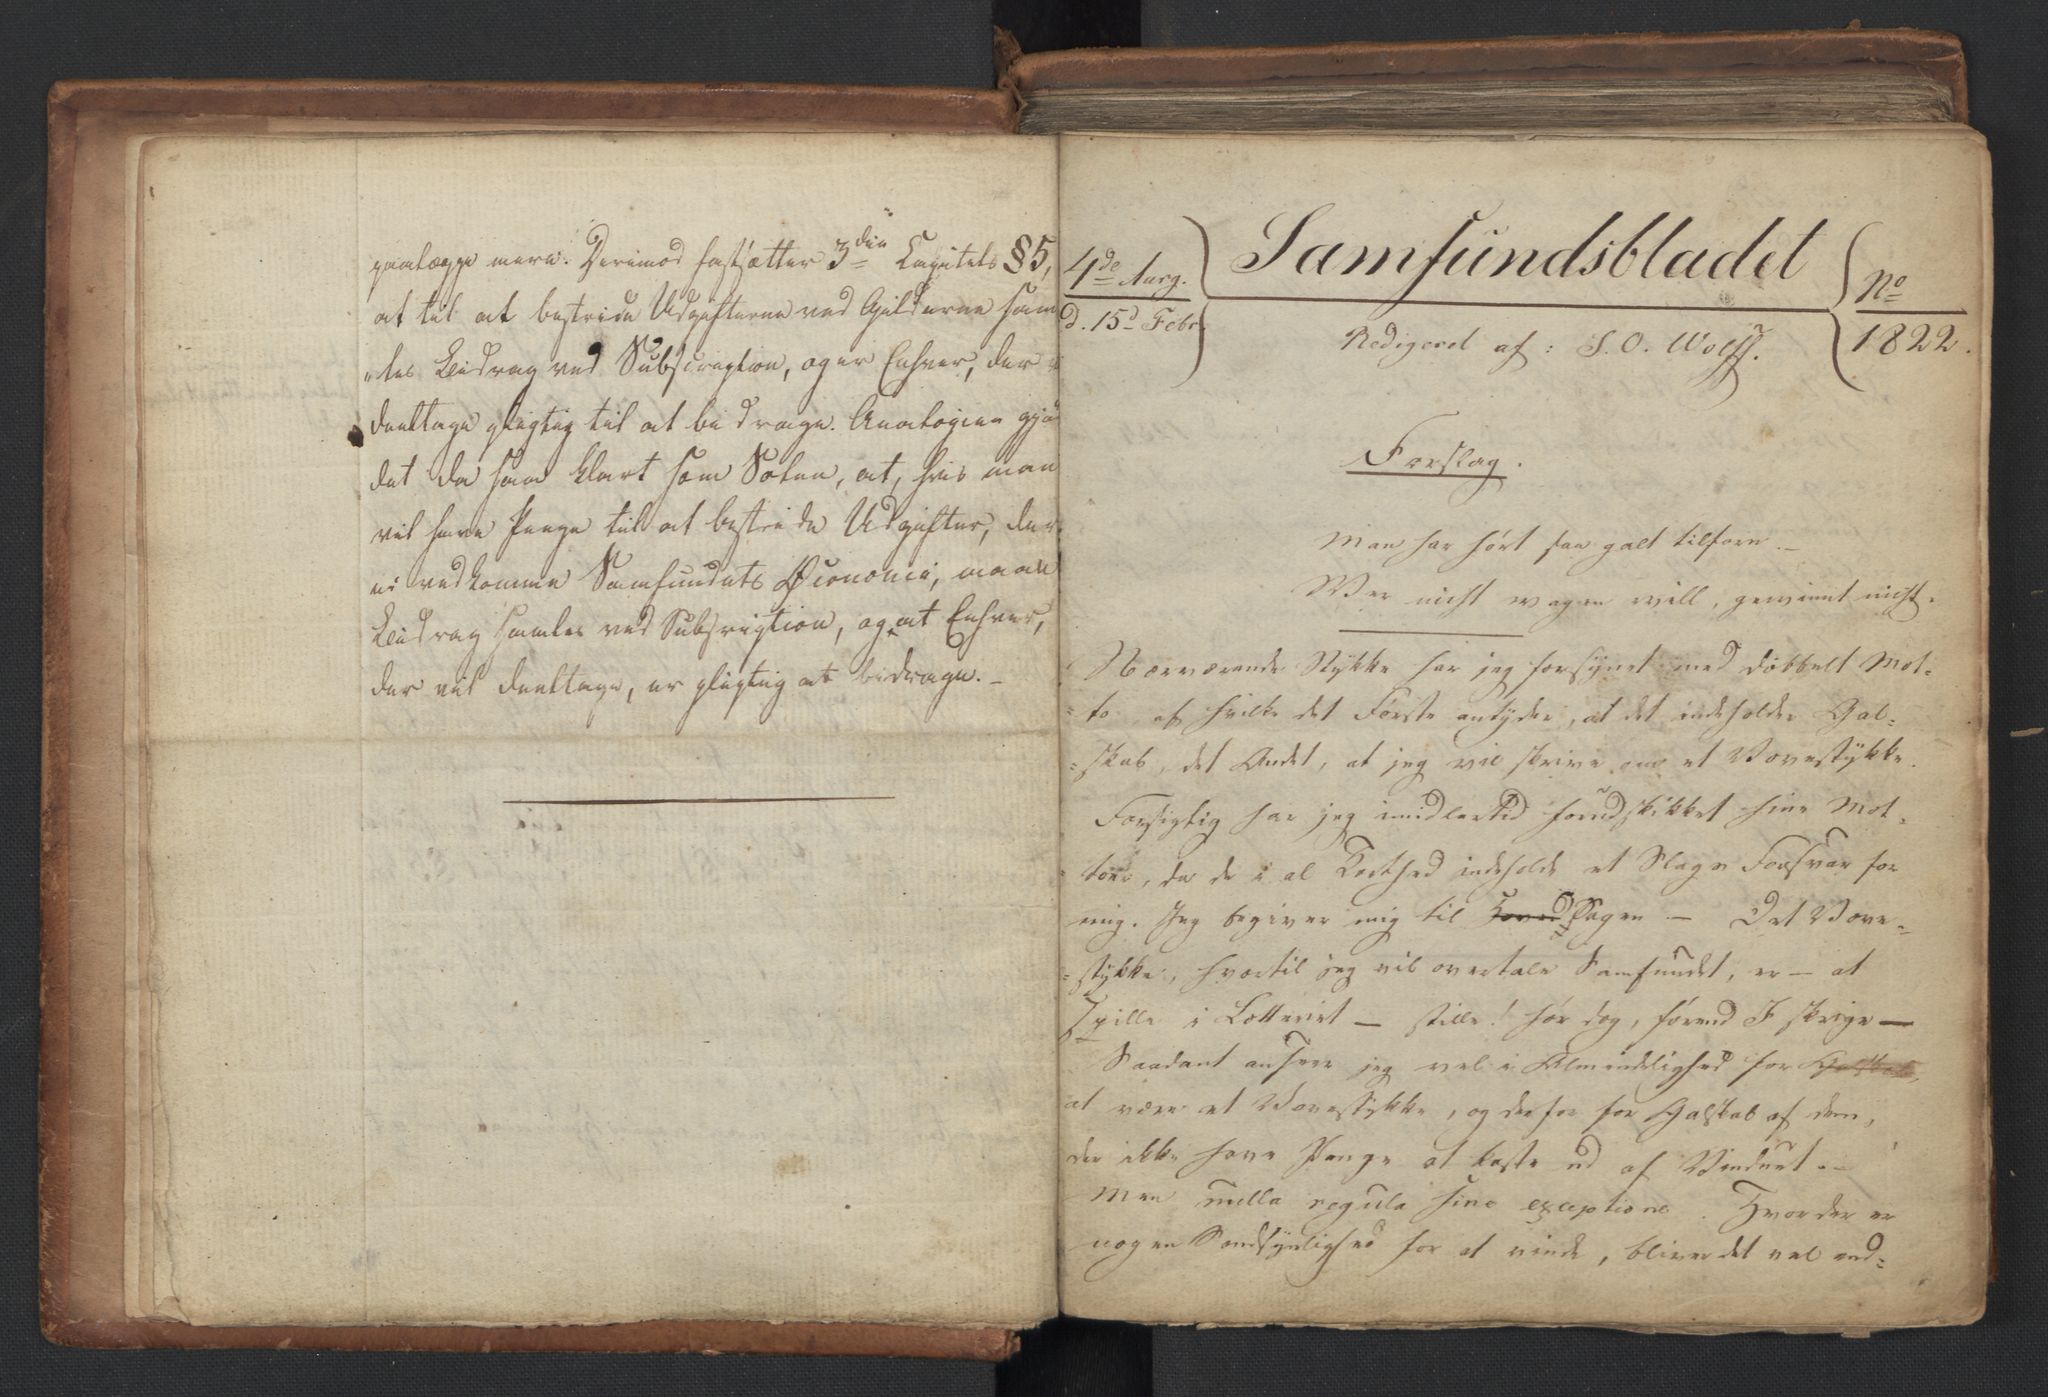 paalægge mere. Derimod fastsætter 3die Capitels §5,
at til at bestride Udgifterne ved Gilderne sam
„les Bidrag ved Subscription, og er Enhver, der
deeltage pligtig til at bidrage. Analogien gjør
det da saa klart som Solen, at, hvis man
vil have Penge til at bestride Udgifter, der
ei vedkomme Samfundets Oeconomie, maae
Bidrag samles ved Subsription, og at Enhver,
der vil deeltage, er pligtig at bidrage. –
4de Aarg.
d. 15d Febr.
Samfundsbladet
Redigeret af: S. O. Wolff.
No
1822.
Forslag.
Man har hørt saa galt tilforn. –
Wer nicht wagen will, gewinnt nicht.
Nærværende Stykke har jeg forsynet med dobbelt Mot-
-to af hvilke det Første antyder, at det indeholder Gal-
-skab, det Andet, at jeg vil skrive om et Vovestykke.
Forsigtig har jeg imidlertid forudskikket hine Mot-
-toer, da de i al Korthed indeholde et Slags Forsvar for
mig. Jeg begiver mig til Hoved Sagen – Det Vove-
-stykke, hvortil jeg vil overtale Samfundet, er – at
spille i Lotteriet – stille! hør dog, førend I skrige –
Saadant anseer jeg vel i Almindelighed for Galskab,
at være et Vovestykke, og derfor for Galskab af dem,
der ikke have Penge at kaste ud af Vinduet. –
Men nulla regula sine exceptione. Hvor der er
nogen Sandsynlighed for at vinde, bliver det vel end-